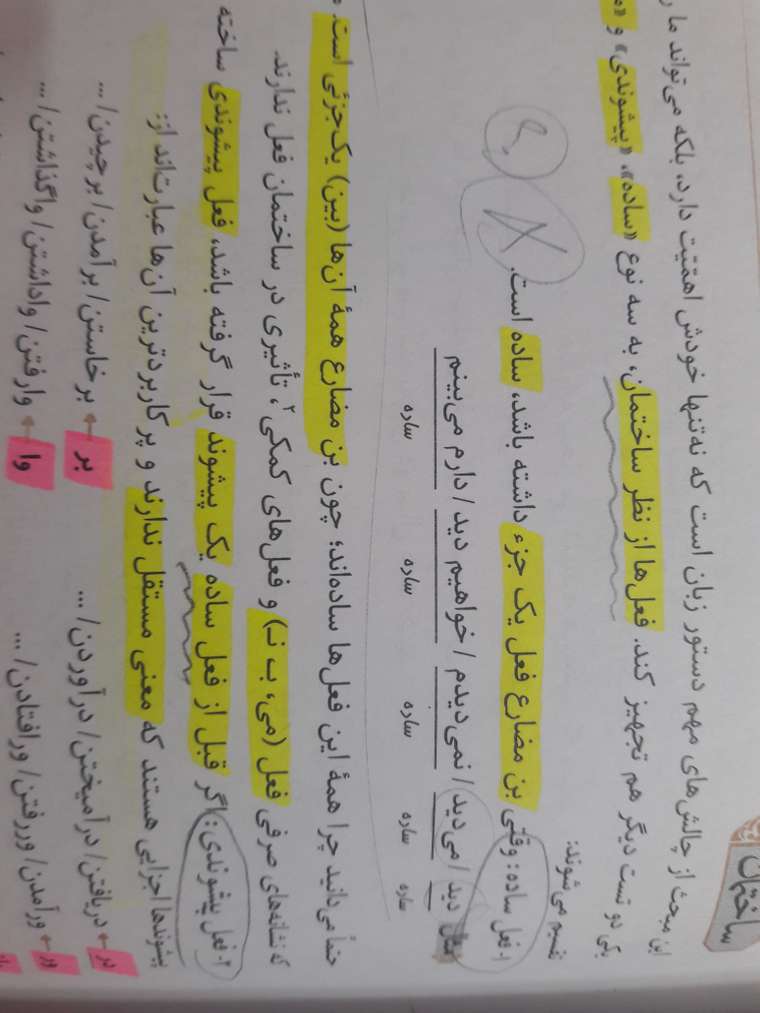 ساختمان
این مبحث از چالش‌های مهم دستور زبان است که نه‌تنها خودش اهمّیّت دارد، بلکه می‌تواند ما ر
یکی دو تست دیگر هم تجهیز کند. فعل‌ها از نظر ساختمان، به سه نوع «ساده»، «پیشوندی» و «م
می‌شوند:
۱- فعل ساده: وقتی بن مضارع فعل یک جزء داشته باشد، ساده است.
دید / می‌دید / نمی‌دیدم / خواهیم دید / دارم می‌بینم
ساده ساده ساده ساده ساده
حتماً می‌دانید چرا همهٔ این فعل‌ها ساده‌اند؛ چون بن مضارع همهٔ آن‌ها (بین) یک‌جزئی است.
که نشانه‌های صرفی فعل (می، ب، نـ) و فعل‌های کمکی۲، تأثیری در ساختمان فعل ندارند.
۲- فعل پیشوندی: اگر قبل از فعل ساده یک پیشوند قرار گرفته باشد، فعل پیشوندی ساخته
پیشوندها اجزایی هستند که معنی مستقل ندارند و پرکاربردترین آن‌ها عبارت‌اند از:
در ← دریافتن/ درآمیختن/ درآوردن/ ... بر ← برخاستن/ برآمدن/ برچیدن/ ...
ور ← ورآمدن/ وررفتن/ ورافتادن/ ... وا ← وارفتن/ واداشتن/ واگذاشتن/ ...